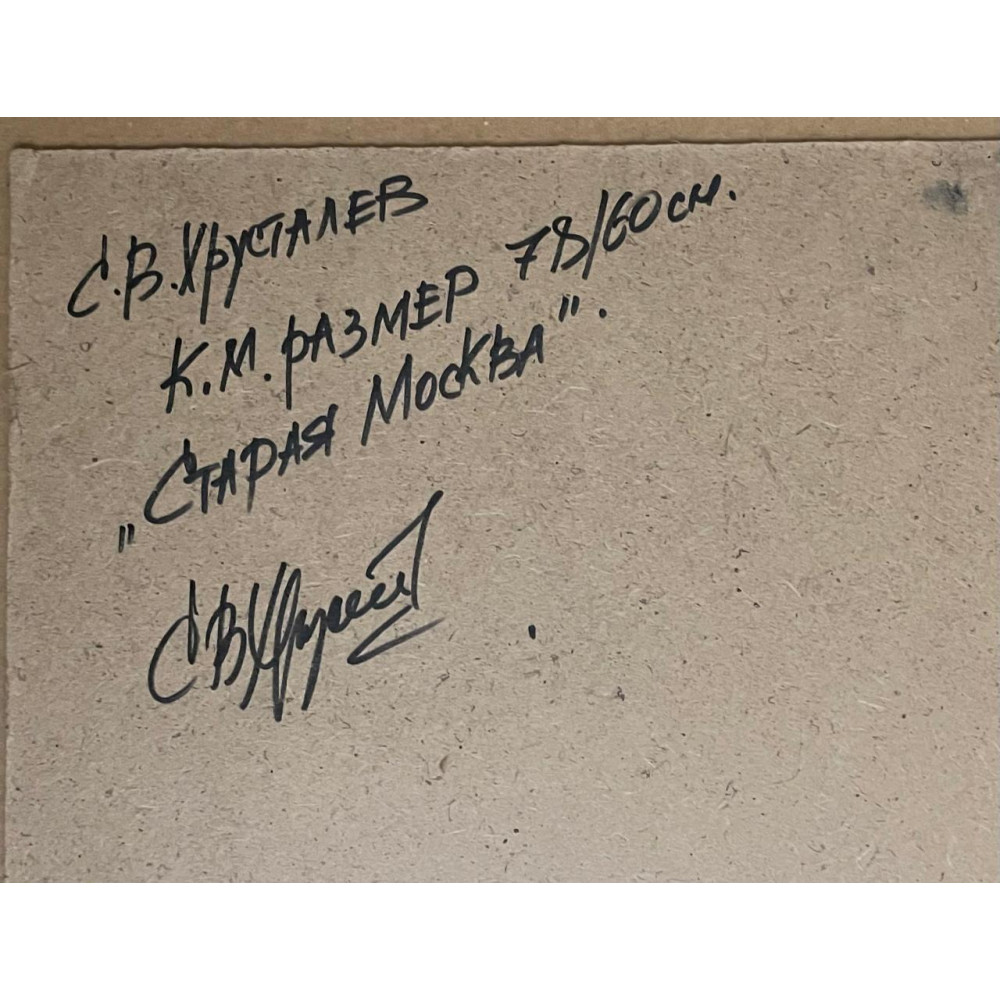 С.В.Хрусталев
К.М. размер 78/60 см.
„Старая Москва".